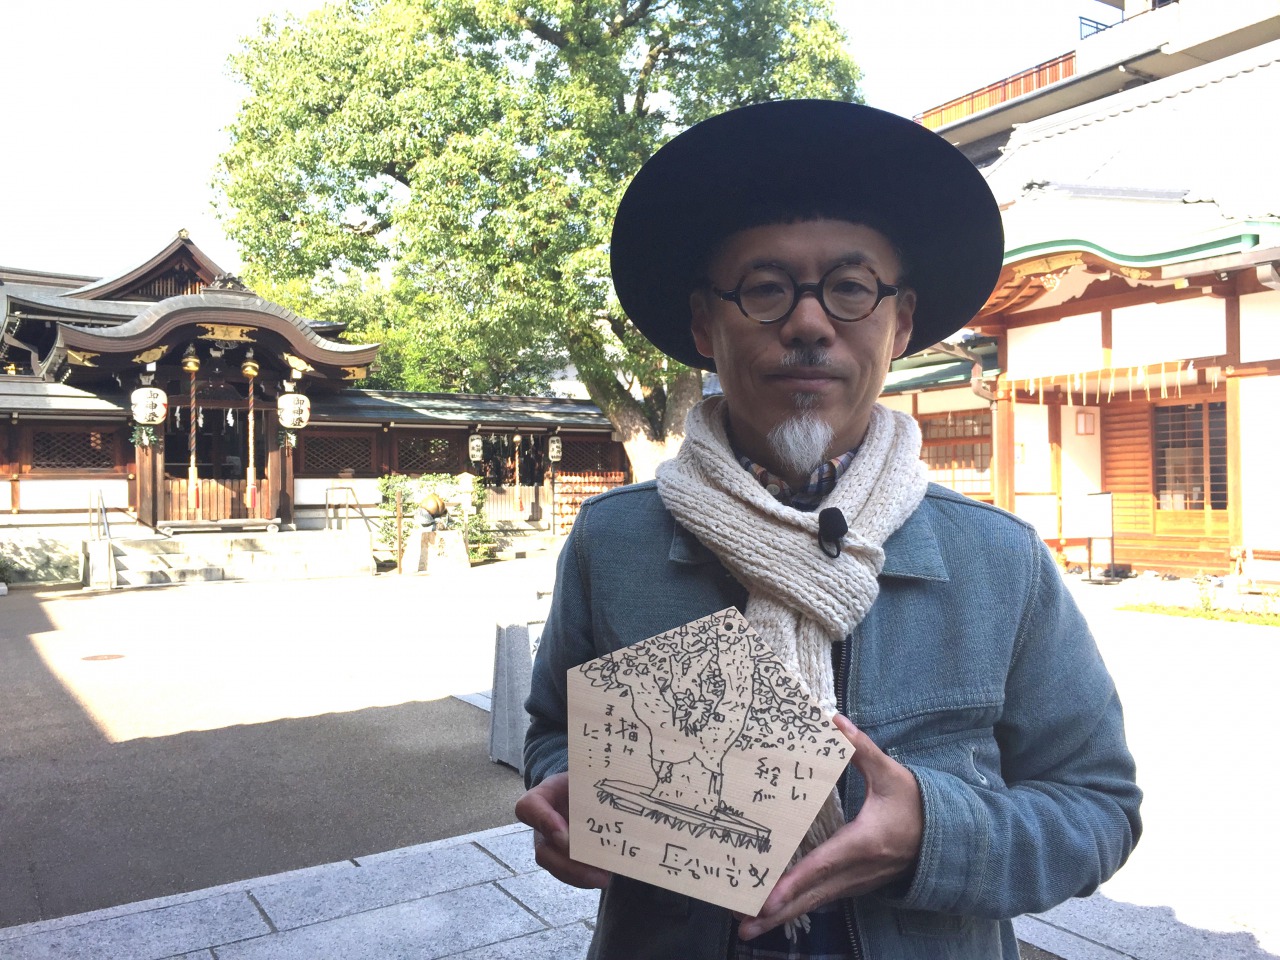 御神燈
御神燈
いい
絵が
描け
ますよう
に…
2015
11.16